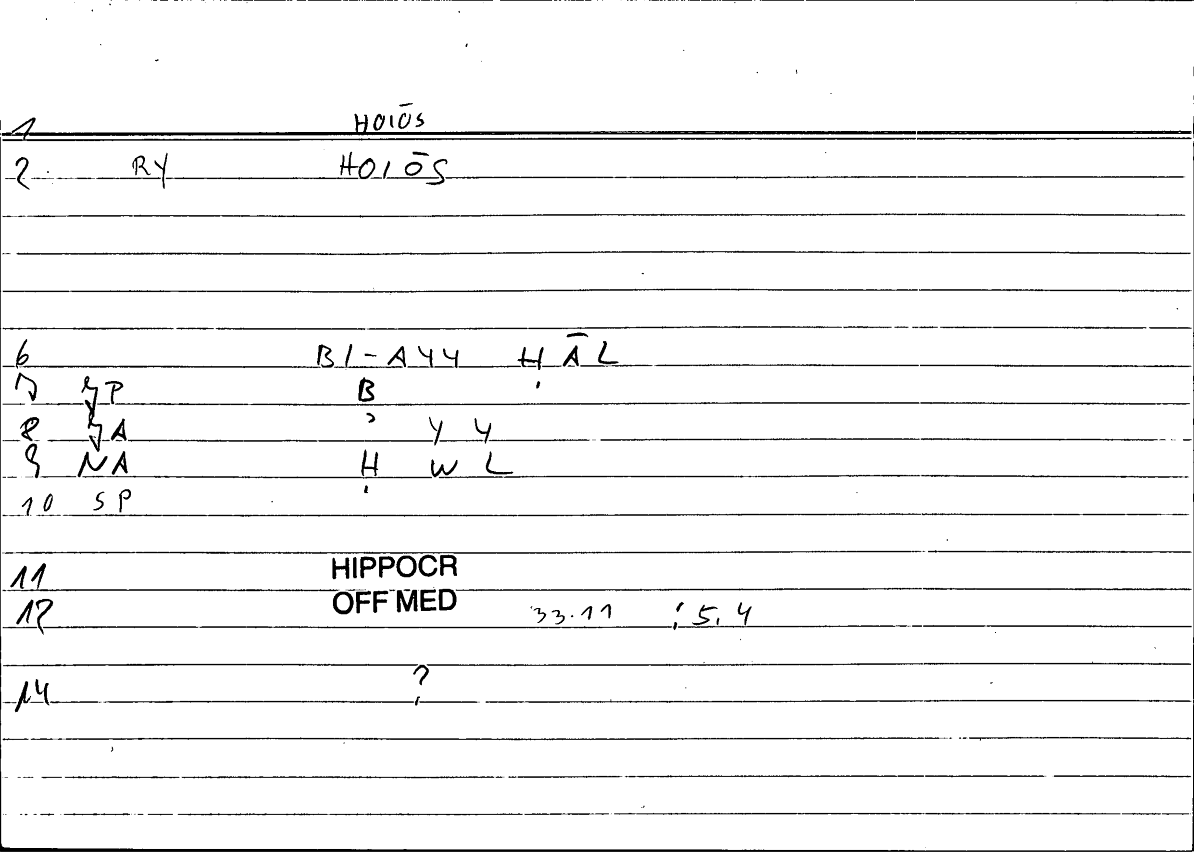 1 HOIŌS
2 RY HOIŌS
6 BI-AYY ḤĀL
7 P B
8 A Y Y
9 NA Ḥ W L
10 SP
11 HIPPOCR
12 OFF MED 33.11 ; 5.4
14 ?